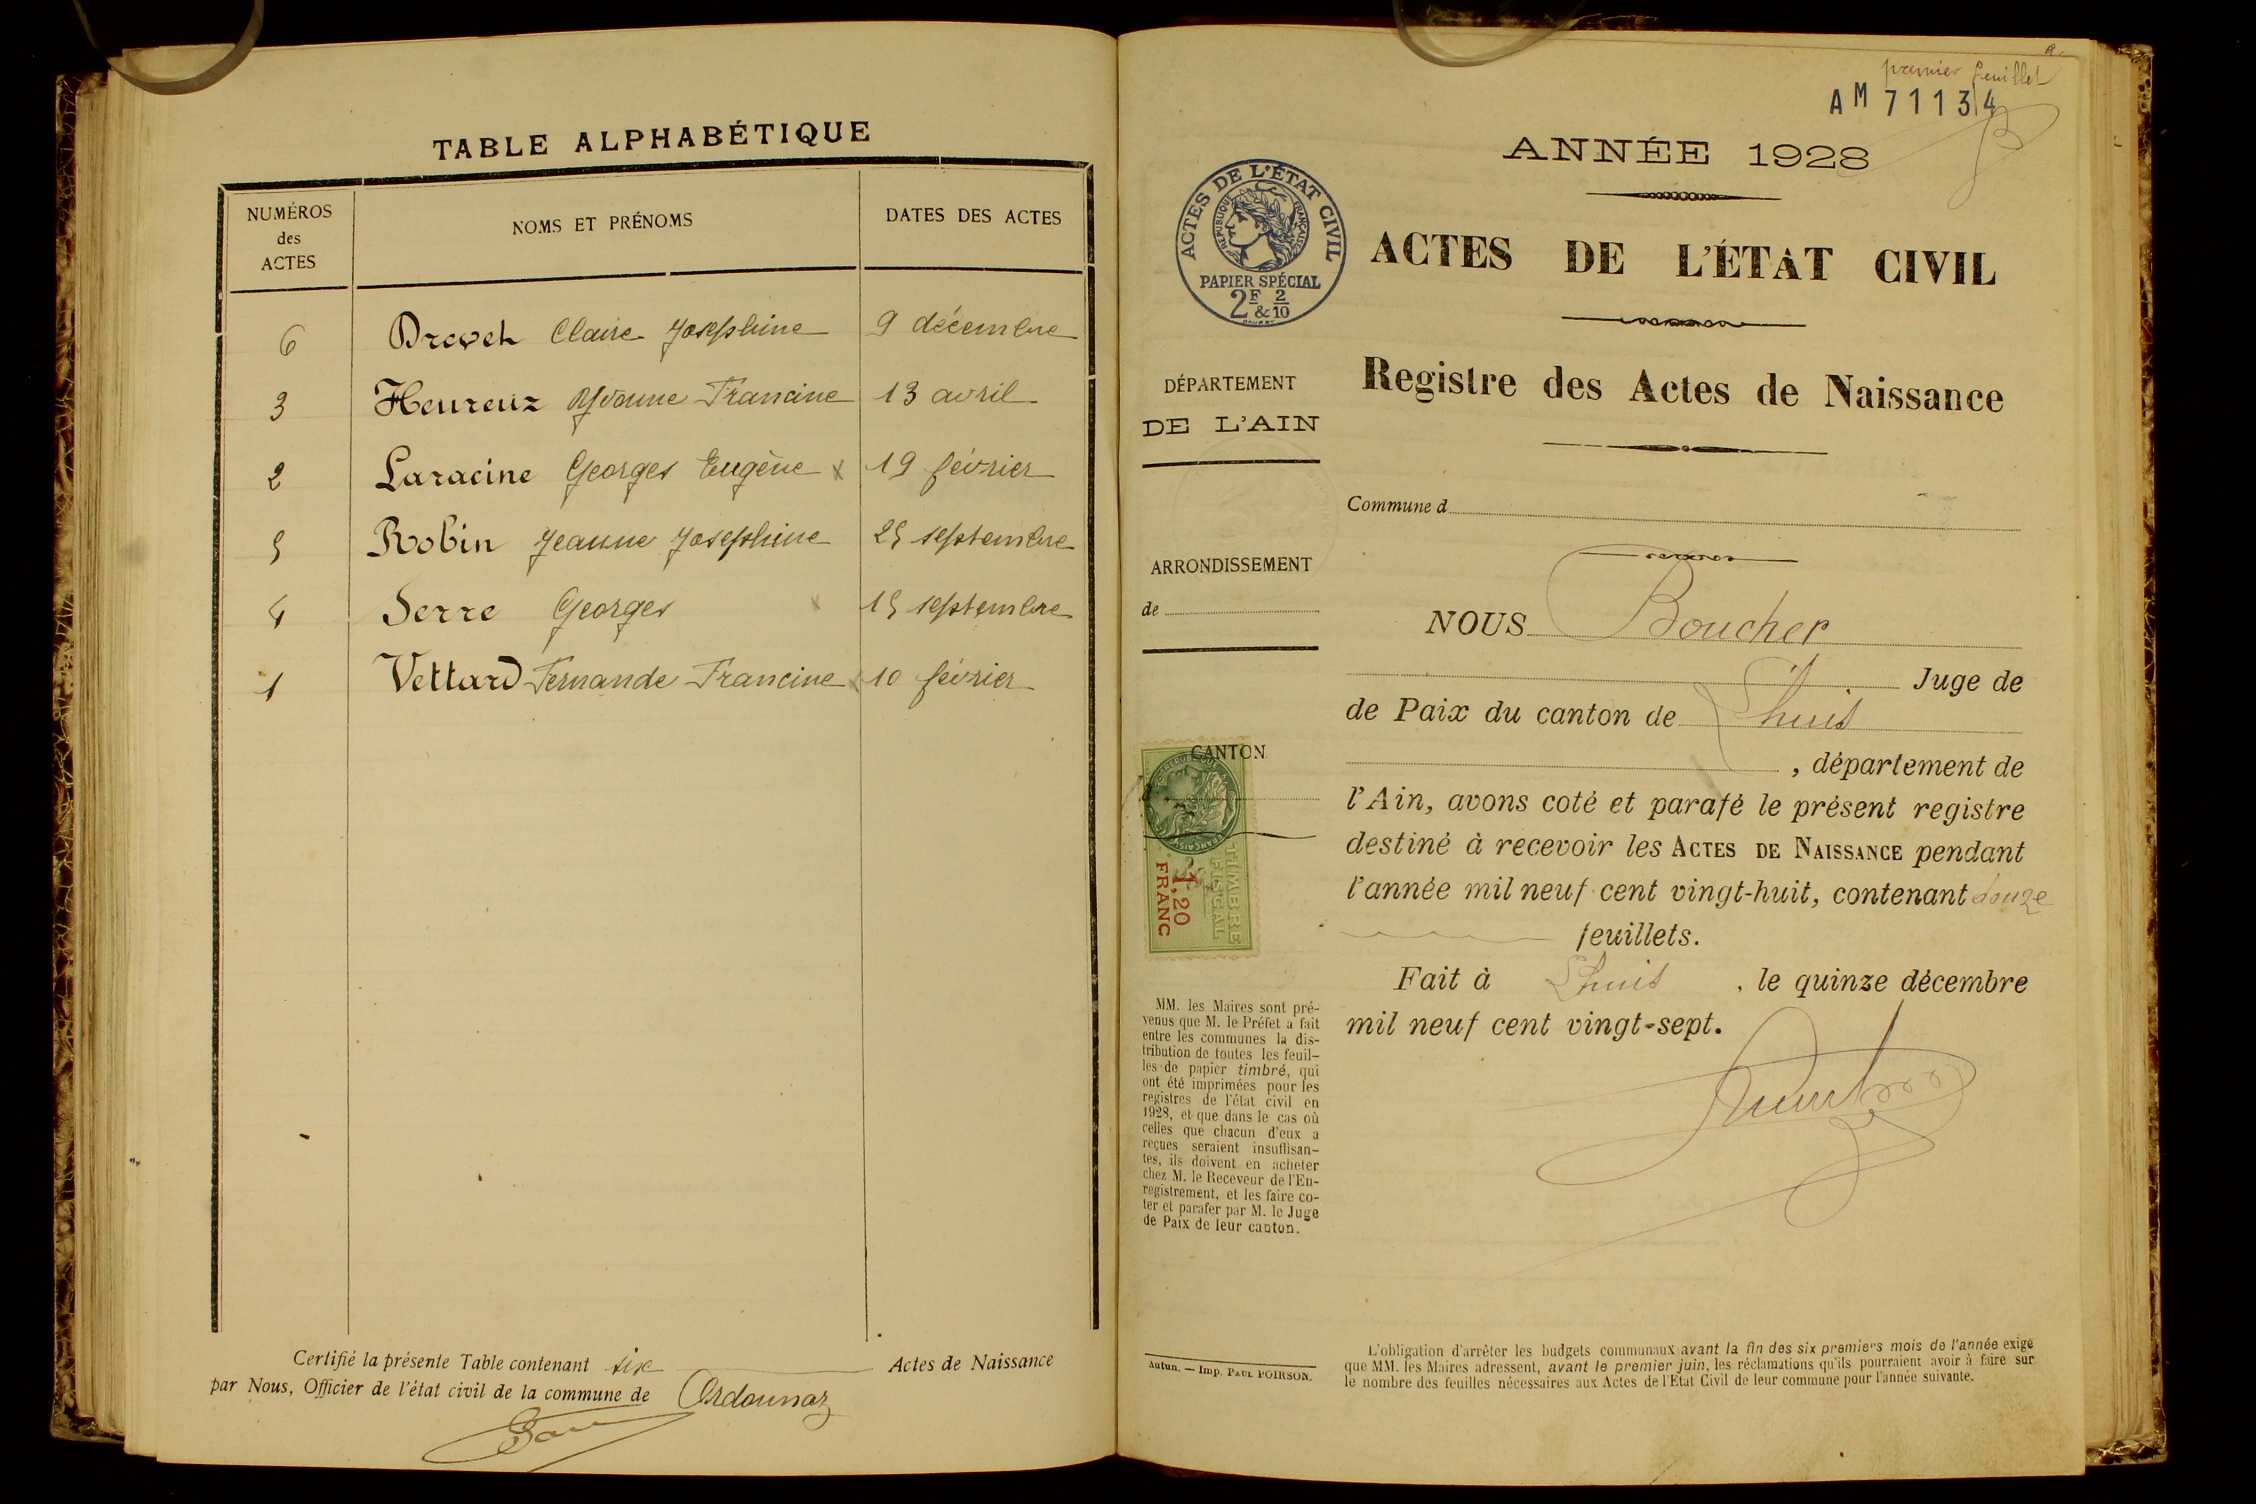 TABLE ALPHABÉTIQUE
NUMÉROS
des
ACTES
NOMS ET PRÉNOMS
DATES DES ACTES
6 Drevet Claire Josephine 9 décembre
3 Heureux Yvonne Francine 13 avril
2 Laracine Georges Eugène x 19 février
5 Robin Jeanne Josephine 25 septembre
4 Serre Georges x 15 septembre
1 Vettard Fernande Francine x 10 février
Certifié la présente Table contenant six Actes de Naissance
par Nous, Officier de l'état civil de la commune de Ordonnaz
premier feuillet
AM 71134
ANNÉE 1928
ACTES DE L'ÉTAT CIVIL
RÉPUBLIQUE FRANÇAISE
PAPIER SPÉCIAL
2F & 2/10
ACTES DE L'ÉTAT CIVIL
Registre des Actes de Naissance
DÉPARTEMENT
DE L'AIN
Commune d
ARRONDISSEMENT
de
NOUS Boucher
Juge de
de Paix du canton de Lhuis
, département de
l'Ain, avons coté et parafé le présent registre
destiné à recevoir les ACTES DE NAISSANCE pendant
l'année mil neuf cent vingt-huit, contenant douze
feuillets.
Fait à Lhuis, le quinze décembre
mil neuf cent vingt-sept.
CANTON
TIMBRE
FISCAL
1,20
FRANC
MM. les Maires sont pré-
venus que M. le Préfet a fait
entre les communes la dis-
tribution de toutes les feuil-
les de papier timbré, qui
ont été imprimées pour les
registres de l'état civil en
1928, et que dans le cas où
celles que chacun d'eux a
reçues seraient insuffisan-
tes, ils doivent en acheter
chez M. le Receveur de l'En-
registrement, et les faire co-
ter et parafer par M. le Juge
de Paix de leur canton.
Autun. — Imp. PAUL POIRSON.
L'obligation d'arrêter les budgets communaux avant la fin des six premiers mois de l'année exige
que MM. les Maires adressent, avant le premier juin, les réclamations qu'ils pourraient avoir à faire sur
le nombre des feuilles nécessaires aux Actes de l'Etat Civil de leur commune pour l'année suivante.